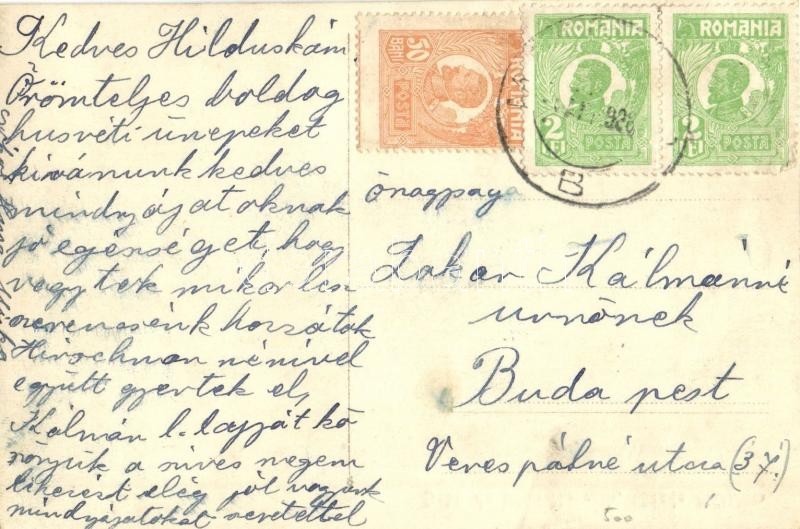 Kedves Hilduskám
Örömteljes boldog
husvéti ünepeket
kivánunk kedves
mindnyájatoknak
jó egénségeti, hogy
vagytok mikor lesz
szerencsénk hozzátok
Hirschman nénivel
együtt gyertek el,
Kálmán l. lapját kö
szönjük a szives megem
likeiért elég jól vagyunk
mindnyájatokat szeretettel
50 BANI POSTA ROMANIA
ROMANIA
2 LEI POSTA
ROMANIA
2 LEI POSTA
B
Önagysága
Lakar Kálmánné
urnőnek
Budapest
Veres pálné utcza (37)
500